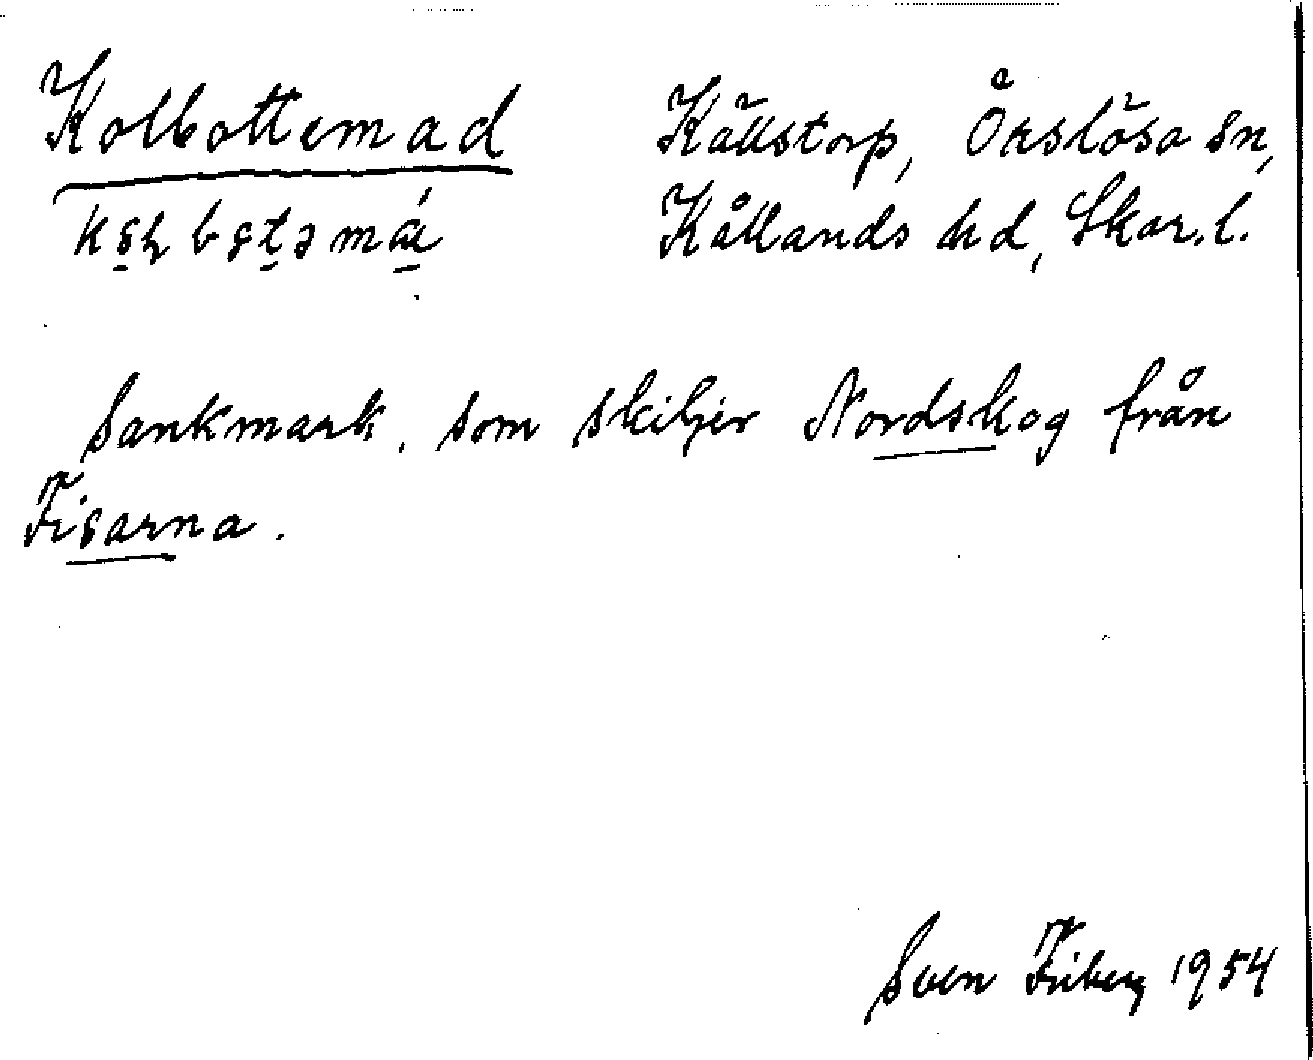 Kolbottemad
Källstorp, Örslösa sn,
Kållands hd, Skar. l.
Sankmark, som skiljer Nordskog från
Fisarna.
Sven Friberg 1954